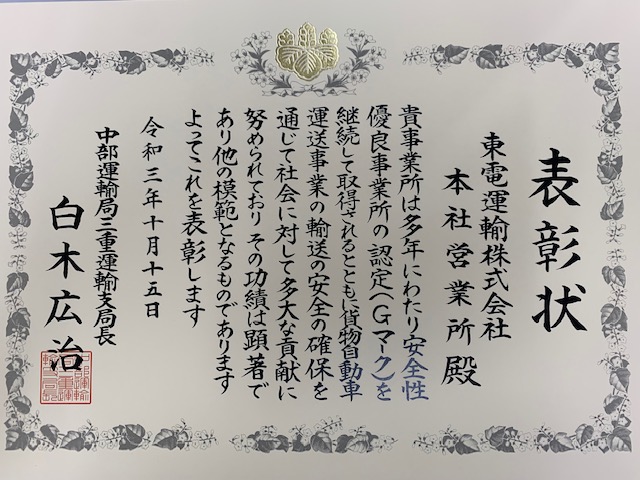 表彰状
東電運輸株式会社
本社営業所殿
貴事業所は多年にわたり安全性
優良事業所の認定(Gマーク)を
継続して取得されるとともに貨物自動車
運送事業の輸送の安全の確保を
通じて社会に対して多大な貢献に
努められており その功績は顕著で
あり他の模範となるものであります
よってこれを表彰します
令和三年十月十五日
中部運輸局三重運輸支局長
白木広治